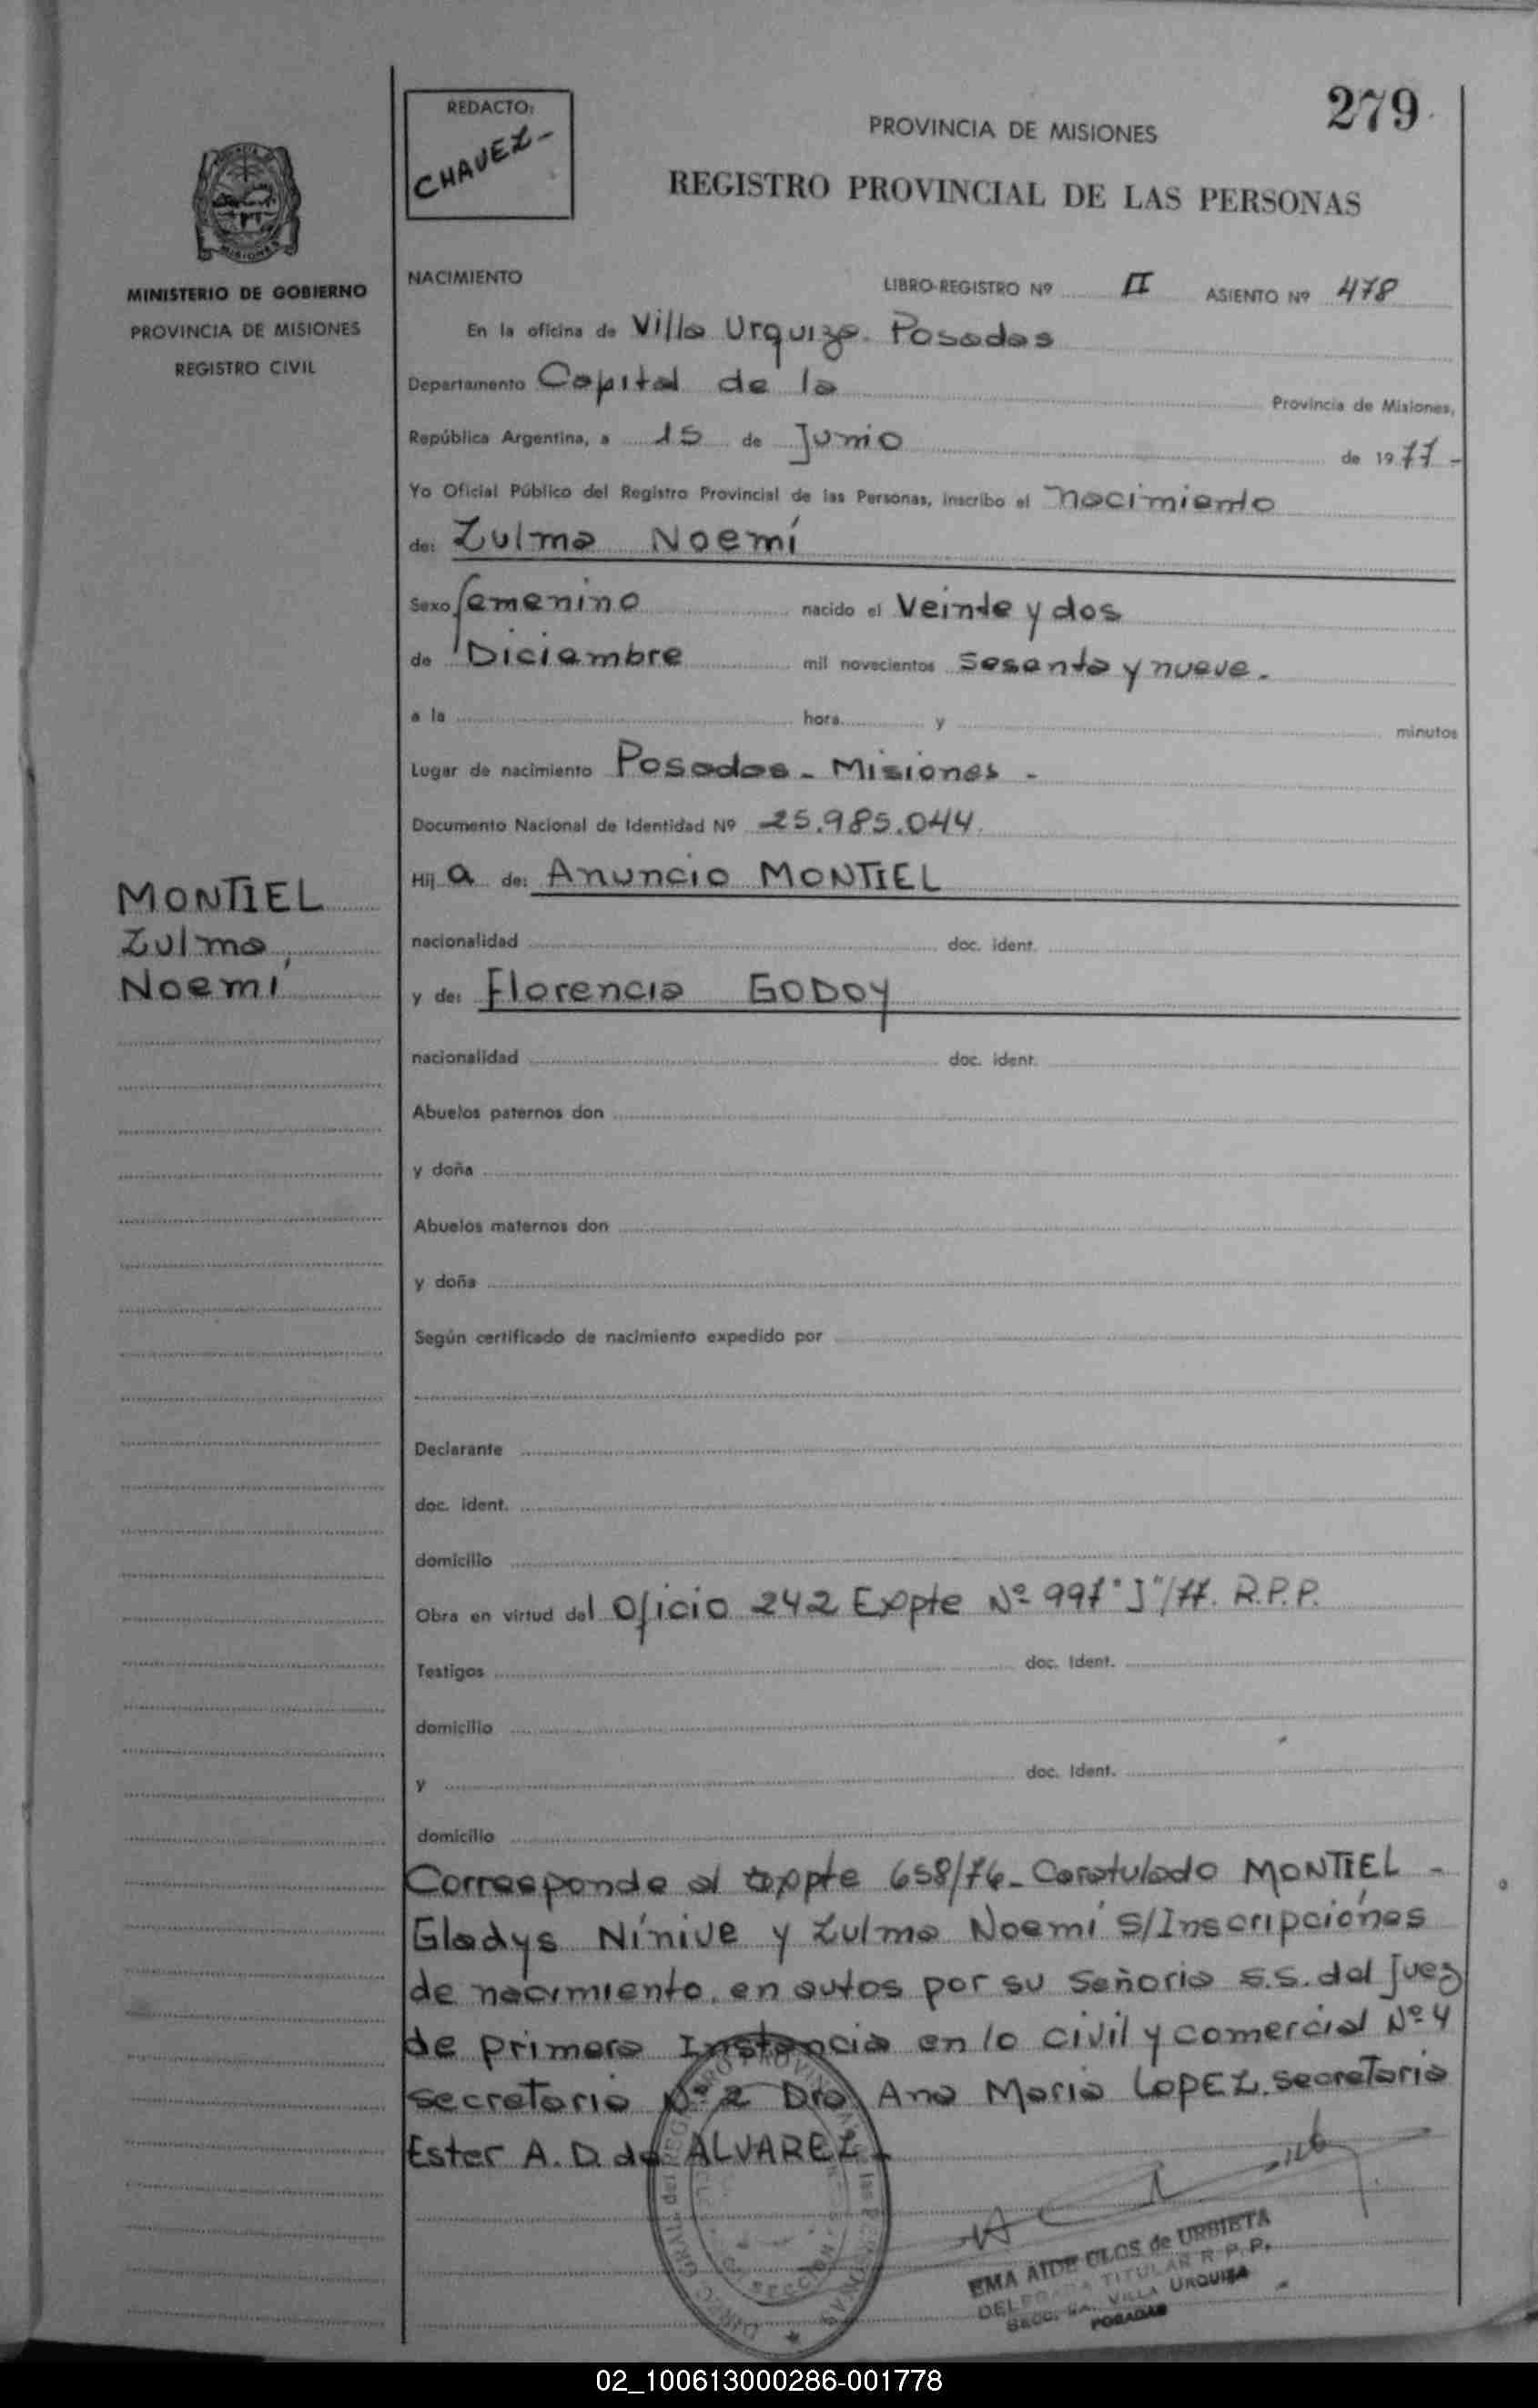 279
REDACTO:
CHAVEZ-
PROVINCIA DE MISIONES
REGISTRO PROVINCIAL DE LAS PERSONAS
MISIONES
MINISTERIO DE GOBIERNO
PROVINCIA DE MISIONES
REGISTRO CIVIL
NACIMIENTO
LIBRO-REGISTRO Nº II ASIENTO Nº 478
En la oficina de Villa Urquiza. Posadas
Departamento Capital de la Provincia de Misiones,
República Argentina, a 15 de Junio de 1977-
Yo Oficial Público del Registro Provincial de las Personas, inscribo el nacimiento
de: Zulma Noemí
Sexo femenino nacido el Veinte y dos
de Diciembre mil novecientos sesenta y nueve.
a la hora y minutos
Lugar de nacimiento Posadas - Misiones -
Documento Nacional de Identidad Nº 25.985.044.
Hij a de: Anuncio MONTIEL
MONTIEL
Zulma,
Noemí
nacionalidad doc. ident.
y de: Florencia GODOY
nacionalidad doc. ident.
Abuelos paternos don
y doña
Abuelos maternos don
y doña
Según certificado de nacimiento expedido por
Declarante
doc. ident.
domicilio
Obra en virtud del Oficio 242 Expte Nº 997"J"/77. R.P.P.
Testigos doc. Ident.
domicilio
y doc. Ident.
domicilio
Corresponde al expte 658/76- Caratulado MONTIEL -
Gladys Nínive y Zulma Noemí S/Inscripciones
de nacimiento. en autos por su señoria S.S. del Juez
de primera Instancia en lo civil y comercial Nº 4
secretaria Nº 2 Dra Ana Maria LOPEZ. secretaria
Ester A. D. de ALVAREZ.
EMA AIDE OLOS de URBIETA
DELEGADA TITULAR R. P. P.
SECC. VILLA URQUIZA
POSADAS
02_100613000286-001778